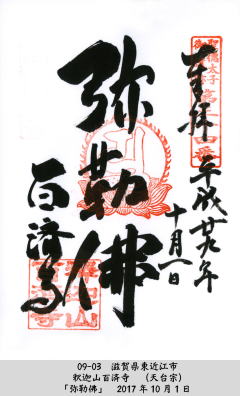 奉拝
平成廿九年
十月一日
弥勒佛
百済寺
09-03 滋賀県東近江市
釈迦山百済寺 (天台宗)
「弥勒佛」 2017年10月1日